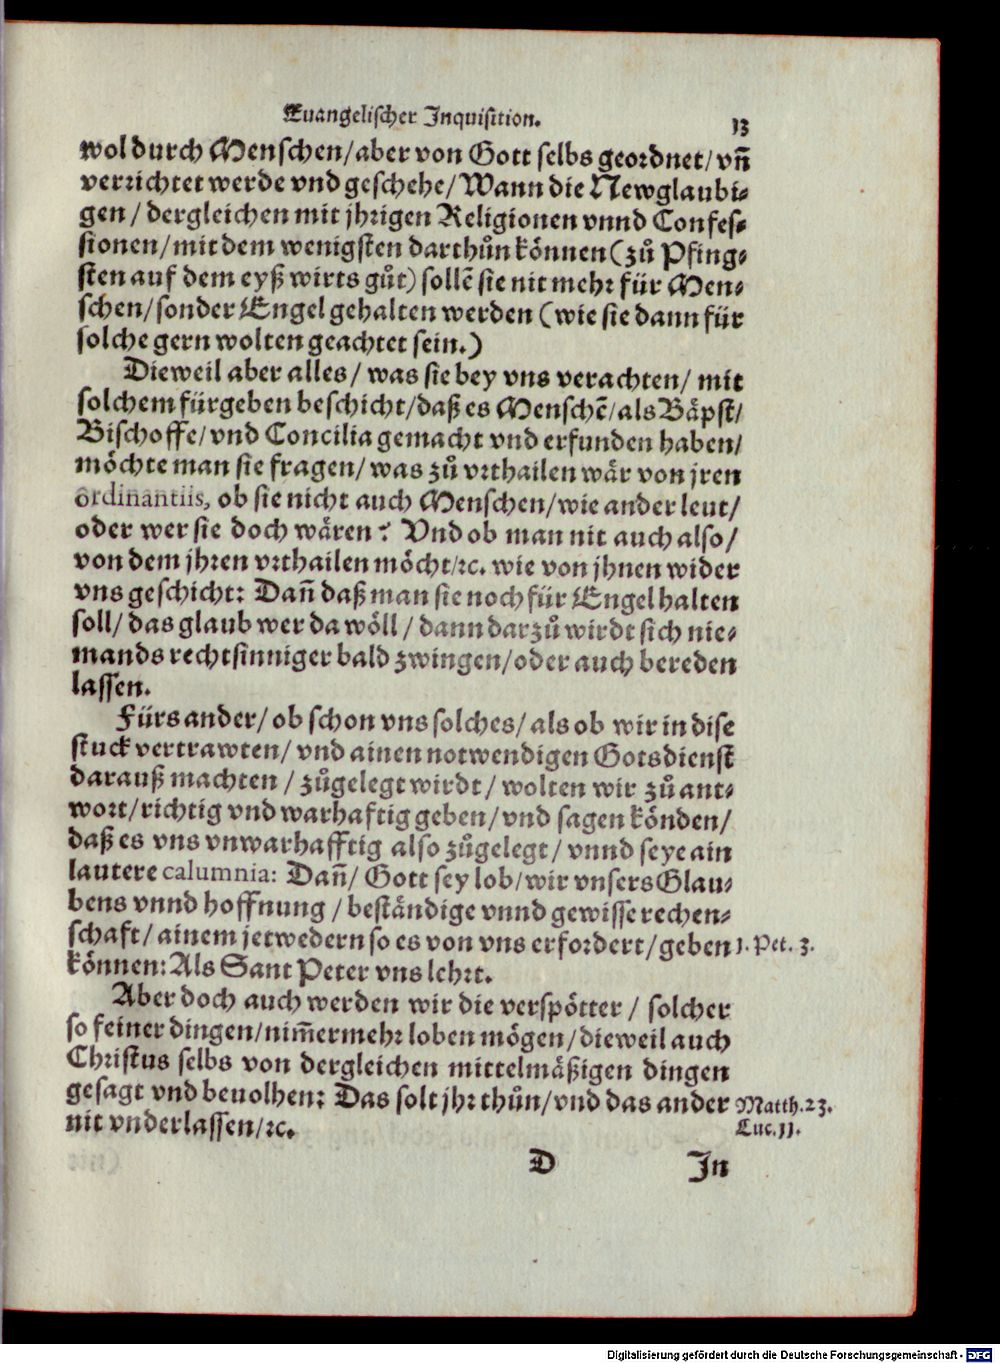 Euangelischer Inquisition. 13
wol durch Menschen/aber von Gott selbs geordnet/vñ
verrichtet werde vnd geschehe/Wann die Newglaubi-
gen/dergleichen mit jhrigen Religionen vnnd Confes-
sionen/mit dem wenigsten darthůn können (zů Pfing-
sten auf dem eyß wirts gůt) sollẽ sie nit mehr für Men-
schen/sonder Engel gehalten werden (wie sie dann für
solche gern wolten geachtet sein.)
Dieweil aber alles/was sie bey vns verachten/mit
solchem fürgeben beschicht/daß es Menschẽ/als Bäpst/
Bischoffe/vnd Concilia gemacht vnd erfunden haben/
möchte man sie fragen/was zů vrthailen wär von jren
ordinantiis, ob sie nicht auch Menschen/wie ander leut/
oder wer sie doch wären? Vnd ob man nit auch also/
von dem jhren vrthailen möcht/ꝛc. wie von jhnen wider
vns geschicht: Dañ daß man sie noch für Engel halten
soll/das glaub wer da wöll/dann darzů wirdt sich nie-
mands rechtsinniger bald zwingen/oder auch bereden
lassen.
Fürs ander/ob schon vns solches/als ob wir in dise
stuck vertrawten/vnd ainen notwendigen Gotsdienst
darauß machten/zůgelegt wirdt/wolten wir zů ant-
wort/richtig vnd warhaftig geben/vnd sagen könden/
daß es vns vnwarhafftig also zůgelegt/vnnd seye ain
lautere calumnia: Dañ/Gott sey lob/wir vnsers Glau-
bens vnnd hoffnung/beständige vnnd gewisse rechen-
schaft/ainem jetwedern so es von vns erfordert/geben 1. Pet. 3.
können: Als Sant Peter vns lehrt.
Aber doch auch werden wir die verspötter/solcher
so feiner dingen/nim̃ermehr loben mögen/dieweil auch
Christus selbs von dergleichen mittelmäßigen dingen
gesagt vnd beuolhen: Das solt jhr thůn/vnd das ander Matth. 23.
nit vnderlassen/ꝛc. Luc. 11.
D In
Digitalisierung gefördert durch die Deutsche Forschungsgemeinschaft - DFG